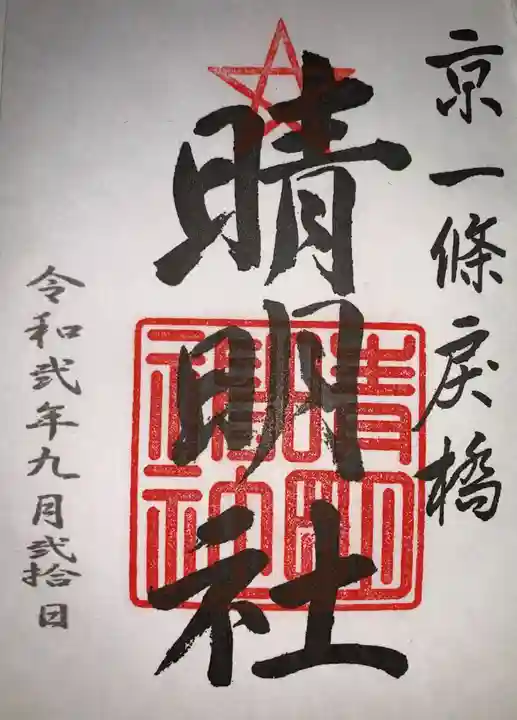 京一條戻橋
晴明社
晴明
神社
令和弐年九月弐拾日